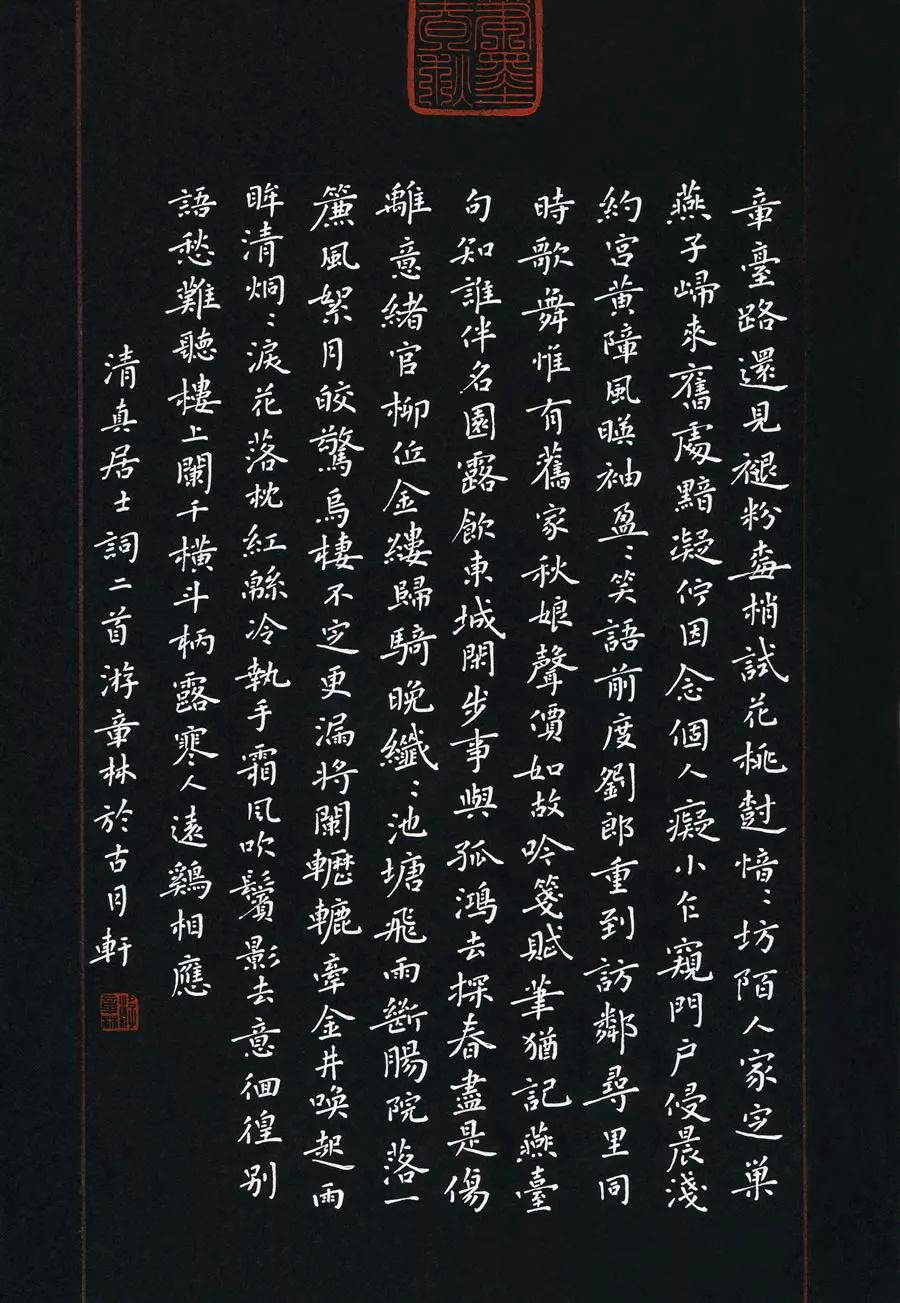 章臺路還見褪粉梅梢試花桃樹愔〻坊陌人家定巢
燕子歸來舊處黯凝佇因念個人癡小乍窺門戶侵晨淺
約宮黃障風映袖盈〻笑語前度劉郎重到訪鄰尋里同
時歌舞惟有舊家秋娘聲價如故吟箋賦筆猶記燕臺
句知誰伴名園露飲東城閑步事與孤鴻去探春盡是傷
離意緒官柳低金縷歸騎晚纖〻池塘飛雨斷腸院落一
簾風絮月皎驚烏棲不定更漏將闌轣轆牽金井喚起兩
眸清炯〻淚花落枕紅綿冷執手霜風吹鬢影去意徊徨別
語愁難聽樓上闌干橫斗柄露寒人遠鷄相應
清真居士詞二首游章林於古月軒